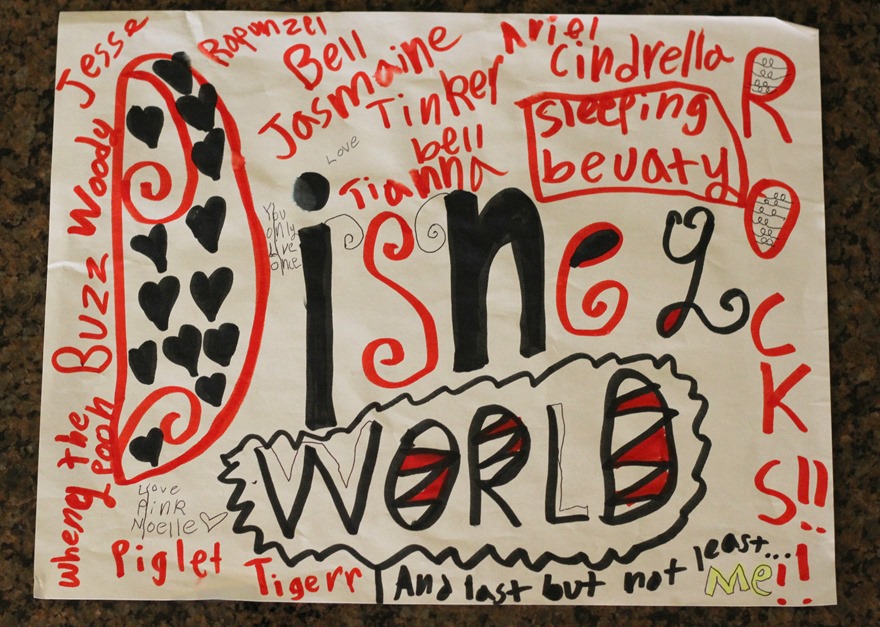 Jesse
Woody
Buzz
whenny the pooh
Rapunzel
Bell
Jasmaine
Tinker
bell
Tianna
Ariel
Cindrella
sleeping
bevaty
Love
You
only
live
once
Disney
WORLD
ROCKS!!!!
Love
Moelle
Piglet
Tigerr
And last but not least...
Me